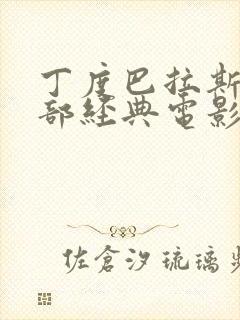 丁度巴拉斯
部經典電影
佐倉汐琉璃